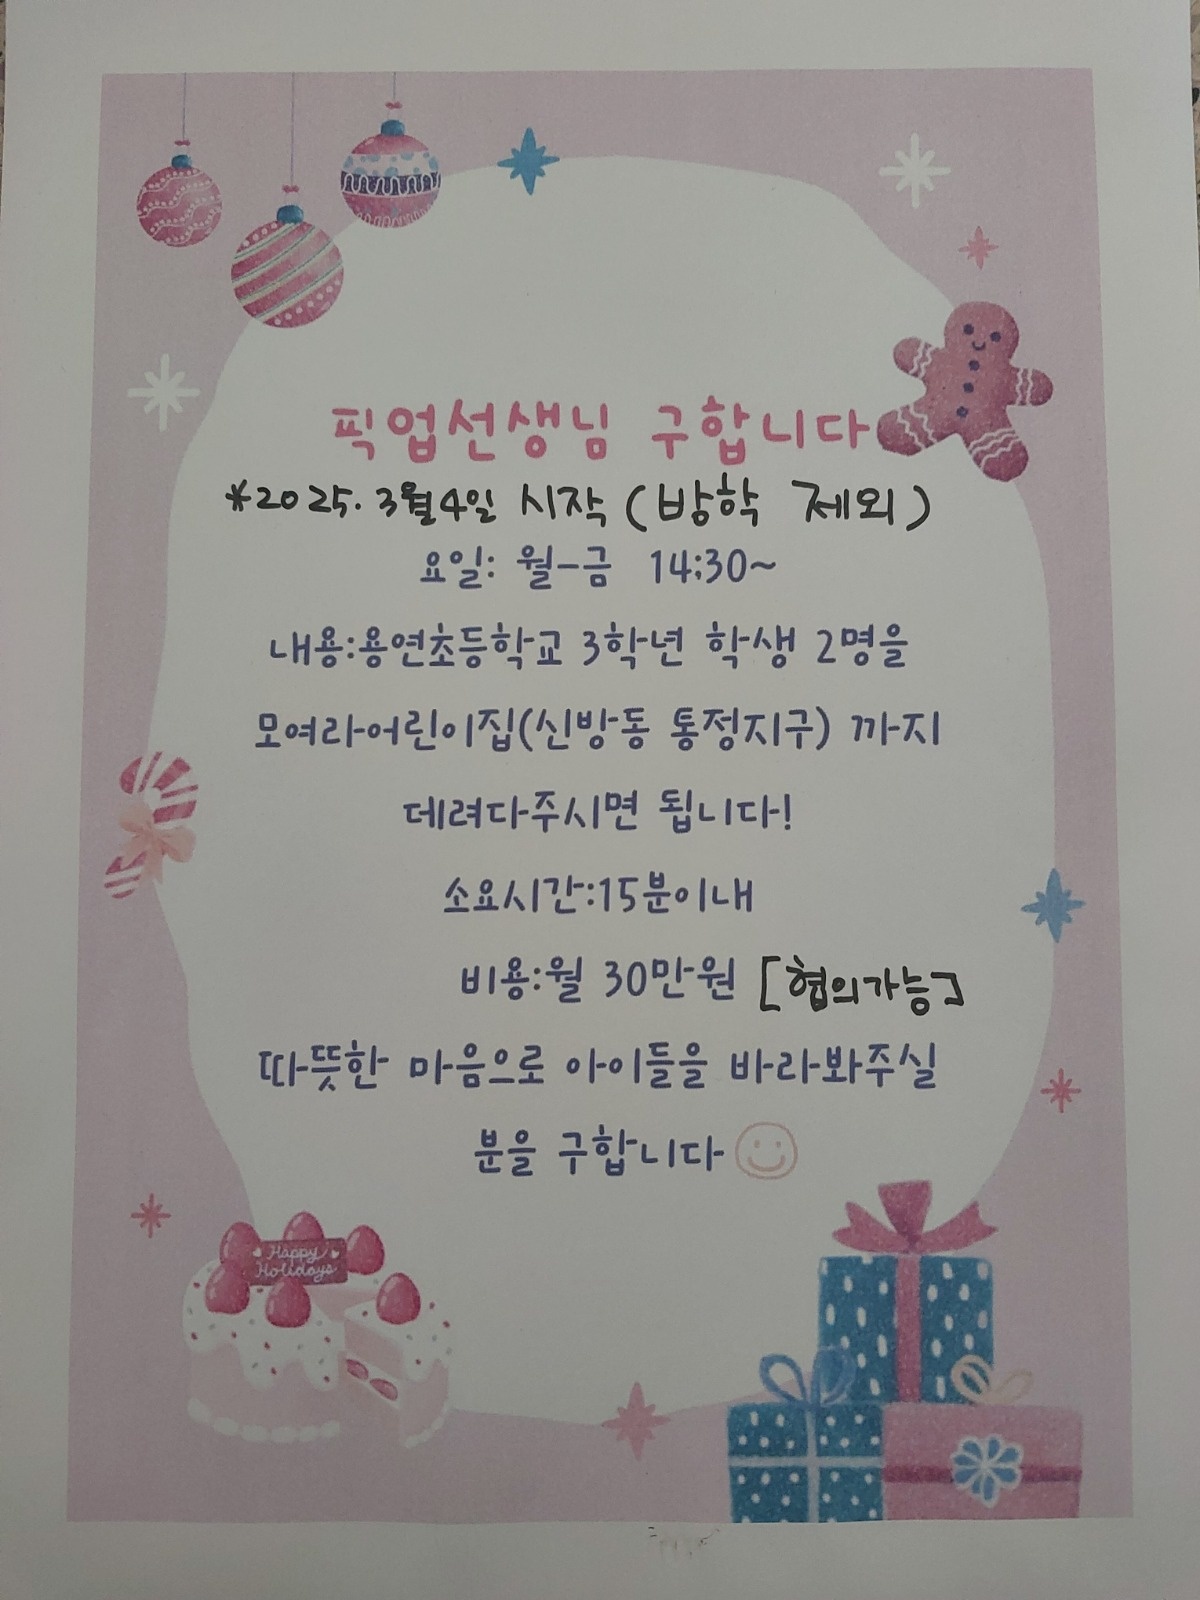 픽업선생님 구합니다
*2025. 3월4일 시작 (방학 제외)
요일: 월-금 14:30~
내용:용연초등학교 3학년 학생 2명을
모여라어린이집(신방동 통정지구) 까지
데려다주시면 됩니다!
소요시간:15분이내
비용:월 30만원 [협의가능]
따뜻한 마음으로 아이들을 바라봐주실
분을 구합니다
Happy
Holidays